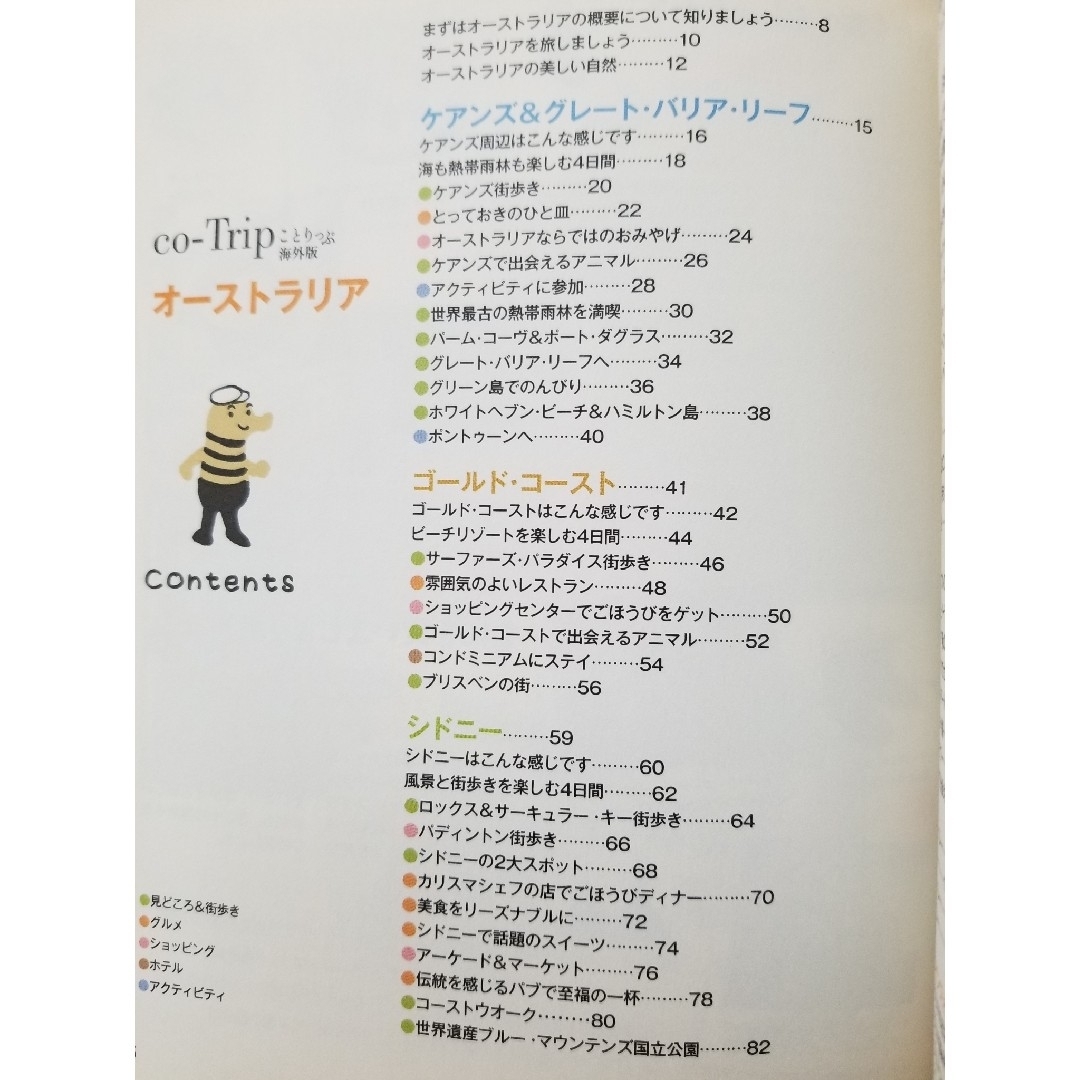 まずはオーストラリアの概要について知りましょう………8
オーストラリアを旅しましょう………10
オーストラリアの美しい自然………12
ケアンズ&グレート・バリア・リーフ………15
ケアンズ周辺はこんな感じです………16
海も熱帯雨林も楽しむ4日間………18
ケアンズ街歩き………20
とっておきのひと皿………22
オーストラリアならではのおみやげ………24
ケアンズで出会えるアニマル………26
アクティビティに参加………28
世界最古の熱帯雨林を満喫………30
パーム・コーヴ&ポート・ダグラス………32
グレート・バリア・リーフへ………34
グリーン島でのんびり………36
ホワイトヘブン・ビーチ&ハミルトン島………38
ポントゥーンへ………40
ゴールド・コースト………41
ゴールド・コーストはこんな感じです………42
ビーチリゾートを楽しむ4日間………44
サーファーズ・パラダイス街歩き………46
雰囲気のよいレストラン………48
ショッピングセンターでごほうびをゲット………50
ゴールド・コーストで出会えるアニマル………52
コンドミニアムにステイ………54
ブリスベンの街………56
シドニー………59
シドニーはこんな感じです………60
風景と街歩きを楽しむ4日間………62
ロックス&サーキュラー・キー街歩き………64
パディントン街歩き………66
シドニーの2大スポット………68
カリスマシェフの店でごほうびディナー………70
美食をリーズナブルに………72
シドニーで話題のスイーツ………74
アーケード&マーケット………76
伝統を感じるパブで至福の一杯………78
コーストウオーク………80
世界遺産ブルー・マウンテンズ国立公園………82
co-Trip ことりっぷ
海外版
オーストラリア
Contents
見どころ&街歩き
グルメ
ショッピング
ホテル
アクティビティ